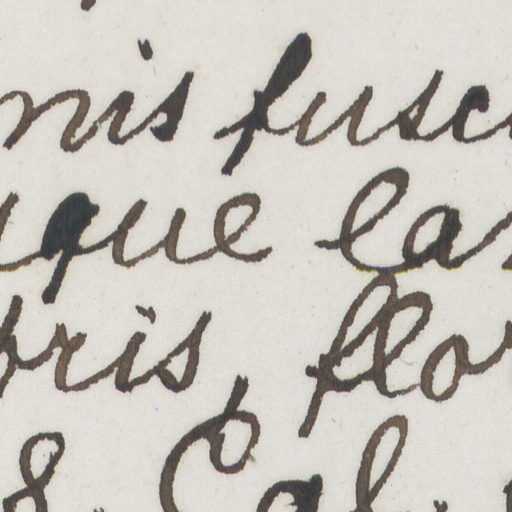 nis fusc
que la
bris, flo
& Cal.